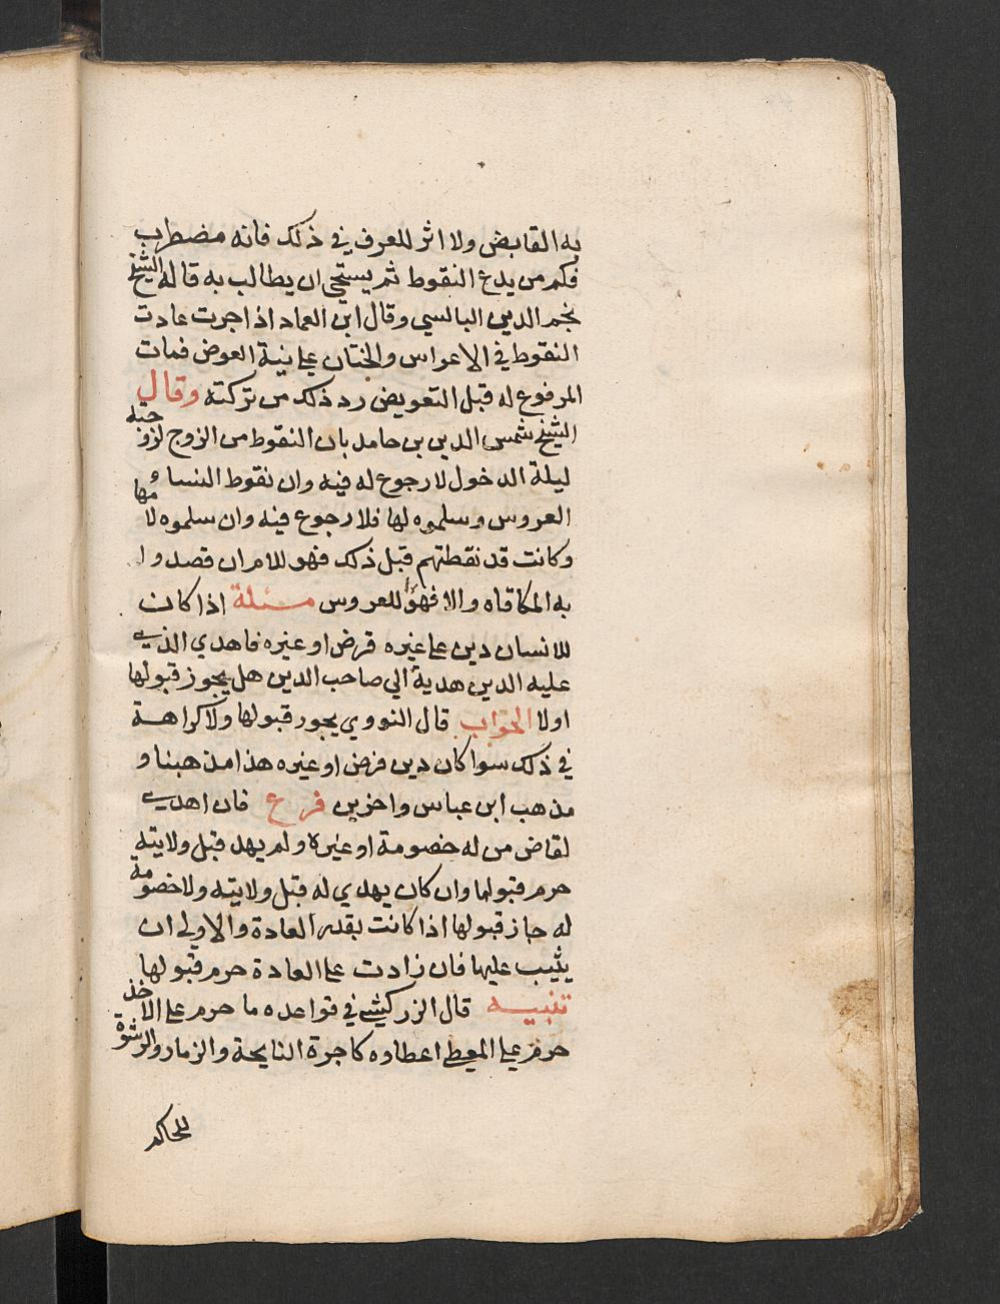 به القابض ولا اثر للعرف في ذلك فانه مضطرب
فكم من يدع النقوط ثم يستحى ان يطالب به قاله الشيخ
نجم الدين البالسي وقال ابن العماد اذا جرت عادت
النقوط في الاعراس والختان على نية العوض فمات
المرفوع له قبل التعويض رد ذلك من تركته وقال
الشيخ شمس الدين بن حامد بان النقوط من الزوج لزوجته
ليلة الدخول لا رجوع له فيه وان نقوط النساء
العروس وسلموه لها فلا رجوع فيه وان سلموه لامها
وكانت قد نقطتهم قبل ذلك فهو للام ان قصدوا
به المكافاه والا فهو للعروس مسئلة اذا كان
للانسان دين على غيره قرض او غيره فاهدي الذي
عليه الدين هدية الي صاحب الدين هل يجوز قبولها
اولا الجواب قال النووي يجوز قبولها ولا كراهة
في ذلك سوا كان دين قرض او غيره هذا مذهبنا و
مذهب ابن عباس واخرين فرع فان اهدي
لقاض من له خصومة او غيره ولم يهد قبل ولايته
حرم قبولها وان كان يهدي له قبل ولايته ولا خصومة
له جاز قبولها اذا كانت بقدر العادة والاولى ان
يثيب عليها فان زادت على العادة حرم قبولها
تنبيه قال الزركشي في قواعده ما حرم على الاخذ
حرم على المعطي اعطاوه كاجرة النايحة والزمار والرشوة
للحاكم